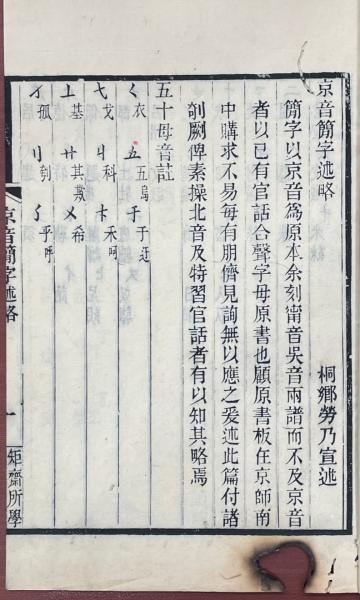 京音簡字述略
桐鄉勞乃宣述
簡字以京音為原本余刻甯音吳音兩譜而不及京音
者以已有官話合聲字母原書也顧原書板在京師南
中購求不易每有朋儕見詢無以應之爰述此篇付諸
剞劂俾素操北音及特習官話者有以知其略焉
五十母音註
衣 五烏 于迂
戈 科 禾呵
基 其欺 希
孤 刳 乎呼
京音簡字述略
一
矩齋所學